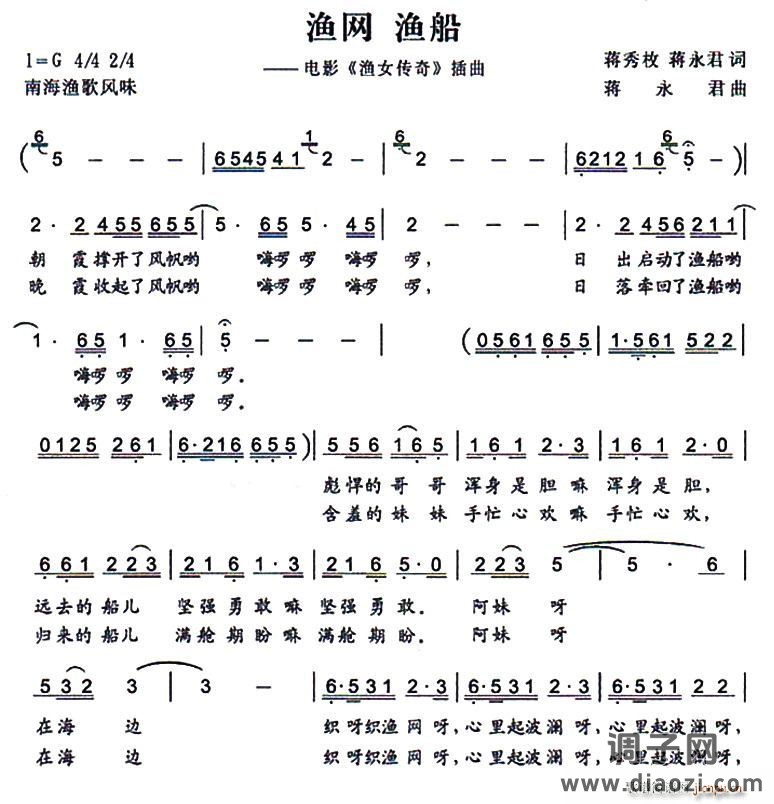 渔网 渔船
1=G 4/4 2/4
南海渔歌风味
——电影《渔女传奇》插曲
蒋秀枚 蒋永君词
蒋永君曲
( 6 5 - - - | 6545 41 1 2 - | 6 2 - - - | 6212 16 6 5 - ) |
2· 2 455 655 | 5· 65 5· 45 | 2 - - - | 2· 2456 211 |
朝 霞撑开了风帆哟 嗨啰 啰 嗨啰 啰, 日 出启动了渔船哟
晚 霞收起了风帆哟 嗨啰 啰 嗨啰 啰, 日 落牵回了渔船哟
1· 65 1· 65 | 5 - - - | ( 0561 655 | 1·561 522 |
嗨啰 啰 嗨啰 啰.
嗨啰 啰 嗨啰 啰.
0125 261 | 6·216 655 ) | 556 165 | 161 2·3 | 161 2·0 |
彪悍的哥 哥 浑身是胆嘛 浑身是胆,
含羞的妹 妹 手忙心欢嘛 手忙心欢,
661 223 | 216 1·3 | 216 5·0 | 223 5 | 5· 6 |
远去的船儿 坚强勇敢嘛 坚强勇敢. 阿妹 呀
归来的船儿 满舱期盼嘛 满舱期盼. 阿妹 呀
532 3 | 3 - | 6·531 6·531 | 6·531 2·231 | 6·531 2·231 |
在海 边 织呀织渔网呀,心里起波澜呀,心里起波澜呀,
在海 边 织呀织渔网呀,心里起波澜呀,心里起波澜呀,
调子网
www.diaozi.com